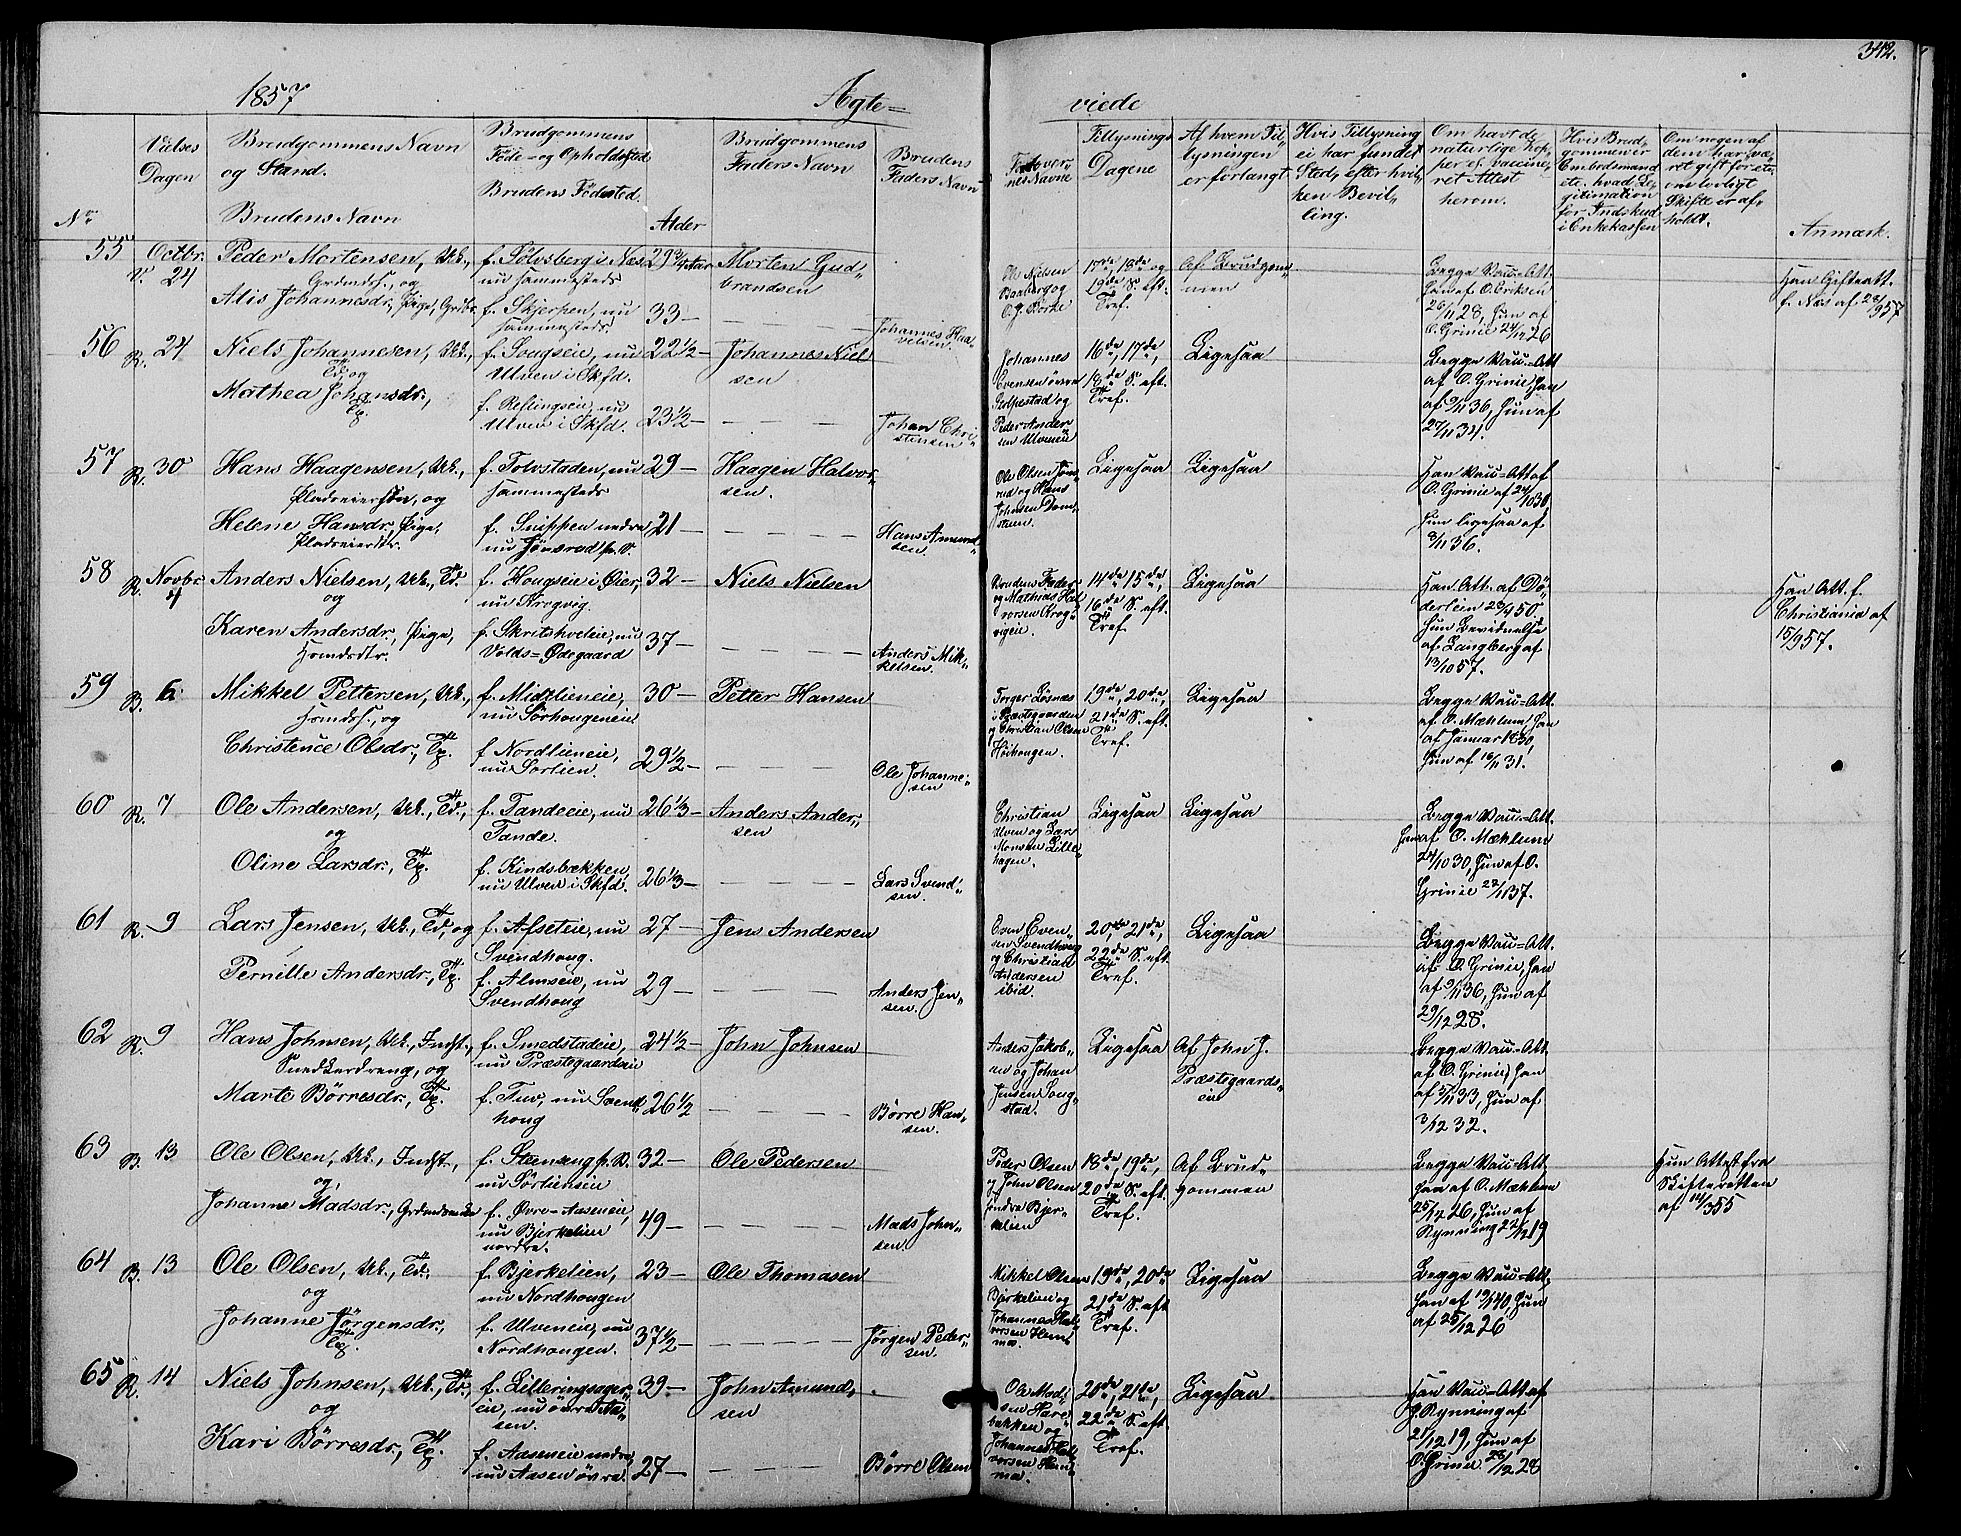 342.
1857 Ægte= viede
No
Vielses Dagen
Brudgommens Navn og Stand.
Brudens Navn
Brudgommens Føde= og Opholdssted
Brudens Fødested.
Alder
Brudgommens Faders Navn
Brudens Faders Navn
Forlovernes Navne
Tillysnings Dagene
Af hvem Tillysningen er forlangt
Hvis Tillysning ei har fundet Sted, efter hvilken Bevilling.
Om havt de naturlige Kopper el. vaccineret Attest herom.
Hvis Brudgommen er Embedsmand etc. hvad Legitimation for Indskud i Enkekassen
Om nogen af dem har været gift før etc. om lovligt Skifte er afholdt.
Anmærk.
55 V. Octbr. 24
Peder Mortensen, Uk., Grdmds., og
f. Sølvsberg i Næs nu sammesteds
29 3/4 Aar
Morten Gudbrandsen
Alis Johannesdr., Pige, Grdbr.
f. Skjerpen, nu sammesteds
33 —
Johannes Haavelsen.
Ole Nielsen Baaberg og O. J. Borke
17de, 18de og 19de S. eft. Tref.
Af Brudgommen
Begge Vac.=Att. Han af O. Eriksen 26/11 28, Hun af O. Grinie 24/12 26
Han Gifteatt. f. Næs af 28/9 57
56 R. 24
Niels Johannesen, Uk., Td., og
f. Sougseie, nu Ulven i Skfd.
22 1/2 —
Johannes Nielsen
Mathea Johansdr., Tp.
f. Reslingseie, nu Ulven i Skfd.
23 1/2 —
Johan Christensen
Johannes Evensen øvre Stolpestad og Peder Andersen Ulveneie
16de, 17de, 18de S. eft. Tref.
Ligesaa
Begge Vac.=Att af O. Grinie, Han af 9/11 36, Hun af 27/11 34.
57 R. 30
Hans Haagensen, Uk., Pladseiersøn, og
f. Tolvstaden, nu sammesteds
29 —
Haagen Halvorsen.
Helene Hansdr., Pige, Pladseierdtr.
f. Snippen nedre nu Jønsrud p. V.
21 —
Hans Amundsen.
Ole Olsen Jønsrud og Hans Johnsen Domstuen
Ligesaa
Ligesaa
Han Vac.=Att af O. Grinie af 24/10 30, Hun ligesaa af 8/11 36.
58 R. Novbr. 4
Anders Nielsen, Uk., Td. og
f. Hougseie i Øier, nu Krogvig.
32 —
Niels Nielsen
Karen Andersdr., Pige, Hsmdsdtr.
f. Skritshoteie, nu Volds=Ødegaard
37 —
Anders Mikkelsen.
Brudens Fader og Mathias Halvorsen Krogvigeie.
14de 15de, 16de S. eft. Tref
Ligesaa
Han Att. af Døderlein 23/4 50. Hun Bevidnelse af Langberg af 13/10 57.
Han Att. f. Christiania af 15/9 57.
59 B. 6.
Mikkel Pettersen, Uk., Hsmdss., og
f. Midtlieneie, nu Sørhougeneie
30 —
Petter Hansen
Christence Olsdr., Tp.
f. Nordlieneie, nu Sørlien.
29 1/2 —
Ole Johannesen
Torger Løsnæs i Præstegaarden og Christian Olsen Høihougen.
19de, 20de, 21de S. eft. Tref.
Ligesaa
Begge Vac.=Att. af O. Mæhlum, Han af Januar 1830, Hun af 16/11 31.
60 R. 7
Ole Andersen, Uk., Td., og
f. Tandeeie, nu Tande.
26 1/3 —
Anders Andersen
Oline Larsdr., Tp.
f. Kindsbækken, nu Ulven i Skfd.
26 1/3 —
Lars Svendsen.
Christian Ulven og Lars Monsen Lillehagen.
Ligesaa
Ligesaa
Begge Vac.=Att. Han af O. Mæhlum 24/10 30, Hun af O. Grinie 22/11 37.
61 R. 9
Lars Jensen, Uk., Td., og
f. Afseteie, nu Svendhoug.
27 —
Jens Andersen
Pernille Andersdr., Tp.
f. Almseie, nu Svendhoug
29 —
Anders Jensen.
Even Evensen Svendhoug og Christian Andersen ibid.
20de, 21de, 22de S. eft. Tref.
Ligesaa
Begge Vac.=Att. af O. Grinie, Han af 9/11 36, Hun af 29/12 28.
62 R. 9
Hans Johnsen, Uk., Indst., Snedkerdreng, og
f. Smedstadeie, nu Præstegaardseie
24 1/2 —
John Johnsen
Marte Børresdr., Tp.
f. Tuv, nu Svendhoug
26 1/2 —
Børre Hansen.
Anders Jakobsen og Johan Jensen Sougstad.
Ligesaa
Af John J. Præstegaardseie
Begge Vac.=Att. af O. Grinie, Han af 5/11 33, Hun af 3/12 32.
63 B. 13
Ole Olsen, Uk., Indst., og
f. Steneng p. R. nu Sørlieneie
32 —
Ole Pedersen
Johanne Madsdr., Grdmdsenke
f. Øvre=Aaseneie, nu Bjerkelien nordre.
49 —
Mads Johnsen.
Peder Olsen og John Olsen søndre Bjerkelien
18de, 19de, 20de S. eft. Tref.
Af Brudgommen
Begge Vac.=Att. Han af O. Mæhlum 25/12 26, Hun af Rynning 22/12 19
Hun Attest fra Skifteretten af 14/3 55
64 B. 13
Ole Olsen, Uk., Td., og
f. Bjerkelien, nu Nordhougen
23 —
Ole Thomasen
Johanne Jørgensdr., Tp.
f. Ulveneie, nu Nordhougen.
37 1/2 —
Jørgen Pedersen.
Mikkel Olsen Bjerkelien og Johannes Halvorsen Hemma.
19de, 20de 21de S. eft Tref.
Ligesaa
Begge Vac.=Att., Han af 19/1 40, Hun af 25/12 26
65 R. 14
Niels Johnsen, Uk., Td., og
f. Lilleringsagereie, nu øvre Aasen.
39 —
John Amundsen
Kari Børresdr., Tp.
f. Aaseneie nedre, nu Aasen øvre.
27 —
Børre Olsen
Ole Madsen Harebakken og Johannes Halvorsen Hemma
20de, 21de, 22de S. eft. Tref.
Ligesaa
Han Vac.=Att af J. Rynning af 21/12 19, Hun af O. Grinie 28/12 28